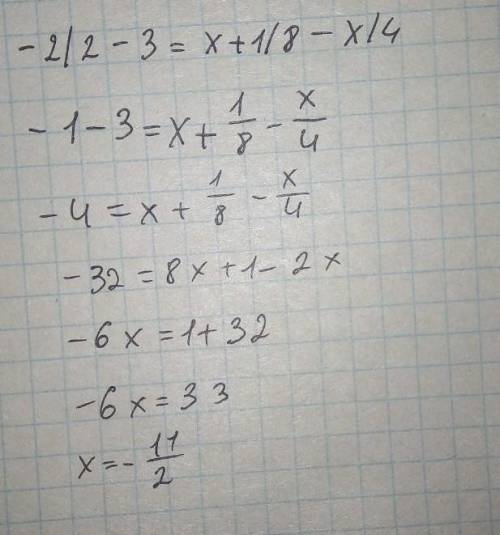 -2/2 - 3 = x + 1/8 - x/4
-1 - 3 = x + 1/8 - x/4
-4 = x + 1/8 - x/4
-32 = 8x + 1 - 2x
-6x = 1 + 32
-6x = 33
x = - 11/2